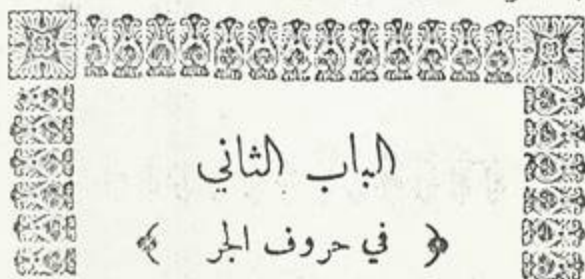 الباب الثاني
﴿ في حروف الجر ﴾